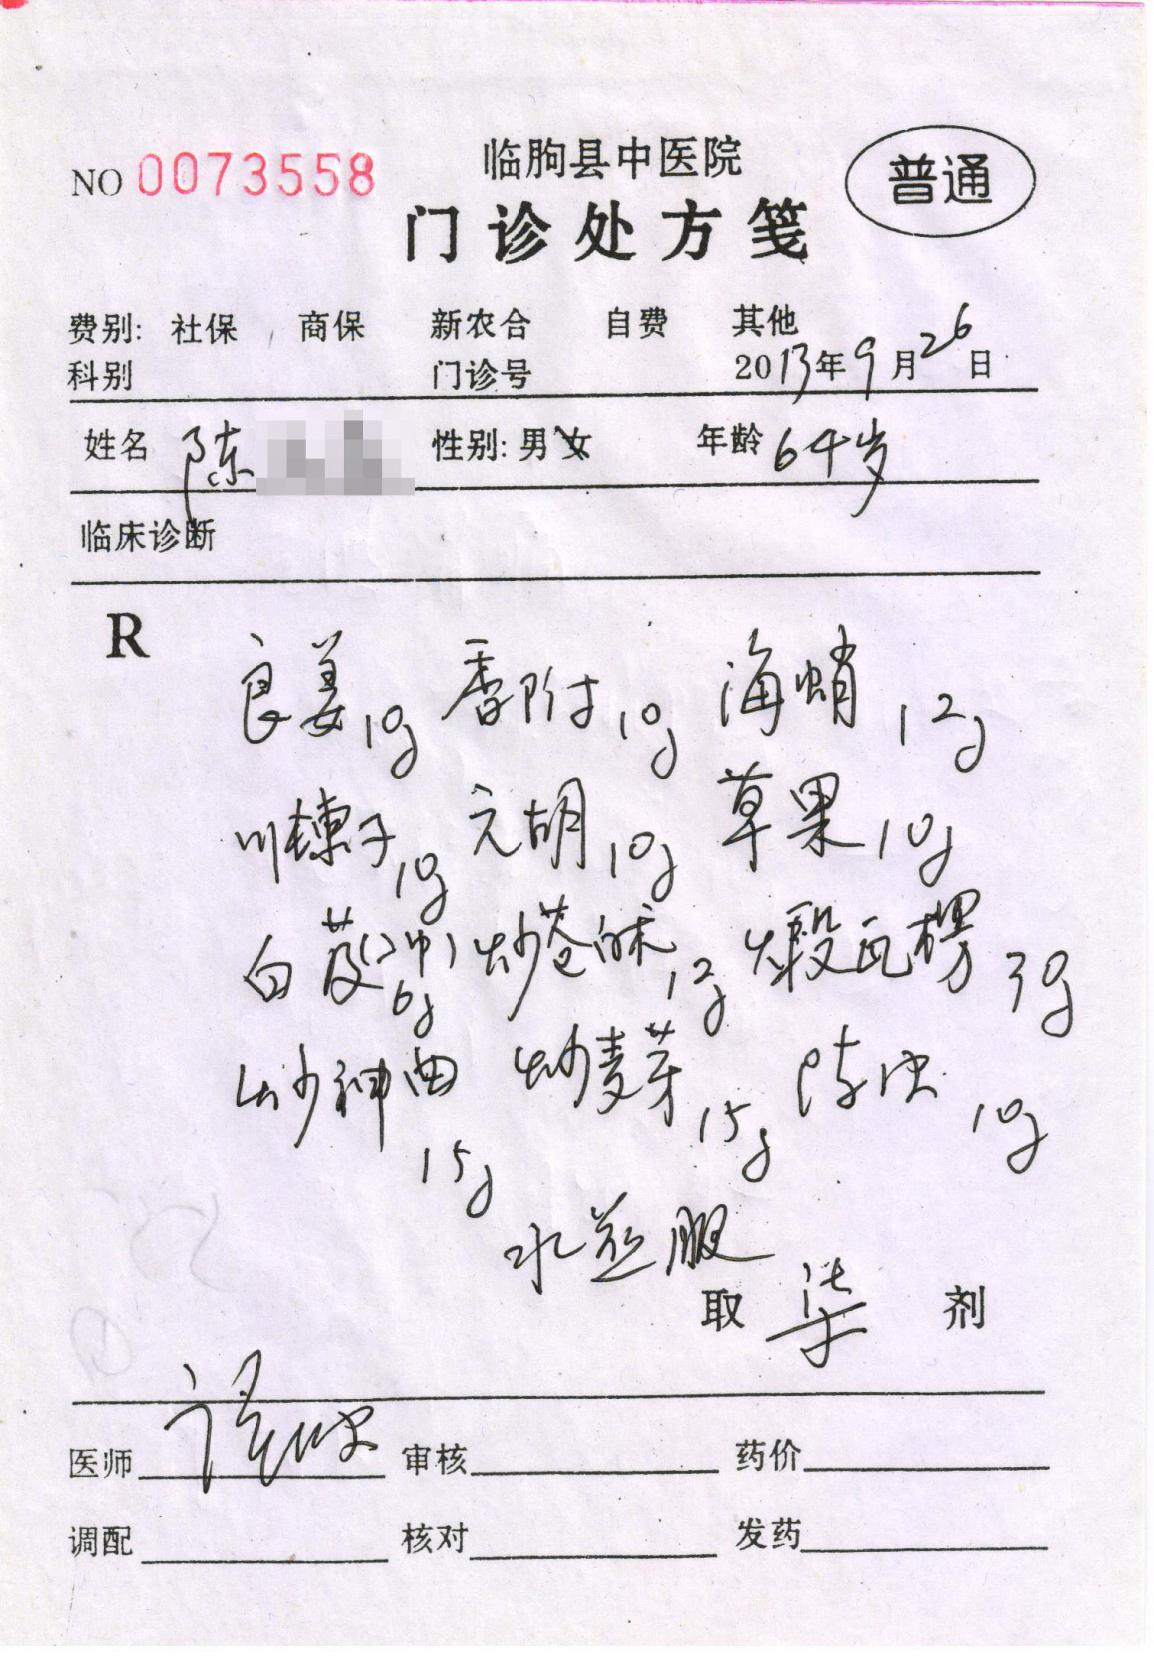 NO 0073558
临朐县中医院
普通
门诊处方笺
费别: 社保 商保 新农合 自费 其他
科别 门诊号 2013年9月26日
姓名 陈 性别: 男女 年龄 64岁
临床诊断
R
良姜10g 香附10g 海蛸12g
川楝子10g 元胡10g 草果10g
白芨(冲)6g 炒苍术12g 煅瓦楞30g
炒神曲15g 炒麦芽15g 陈皮10g
水煎服
取 柒 剂
医师 审核 药价
调配 核对 发药